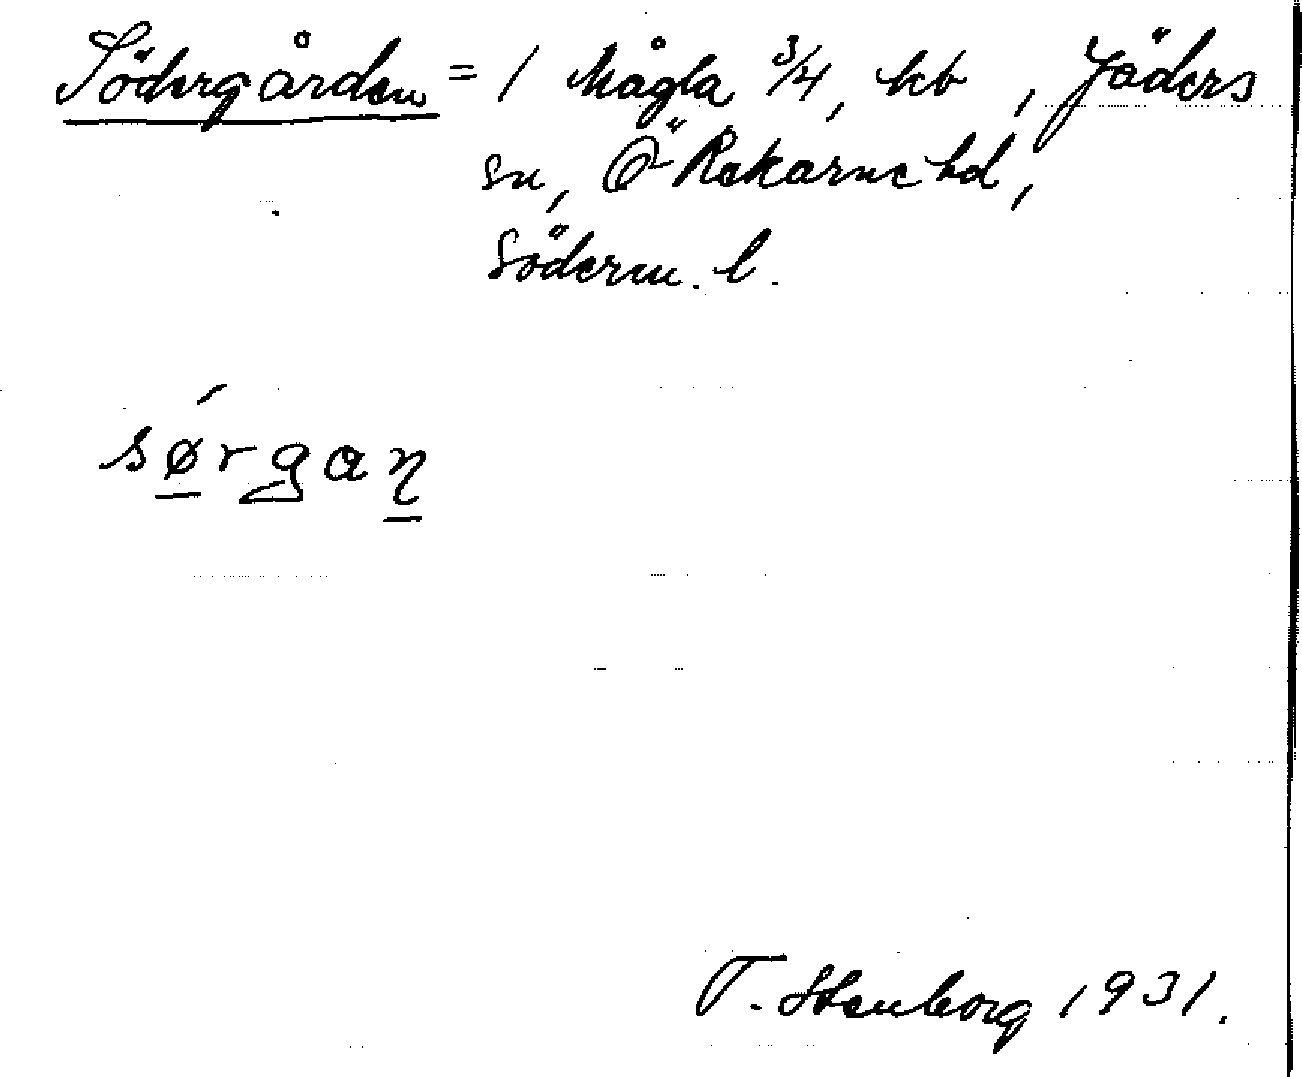 Södergården = 1 Mågla 3/4, hb , Jäders
sn, Ö Rekarne hd,
Söderm. l.
sørgaɳ
T. Stenborg 1931.